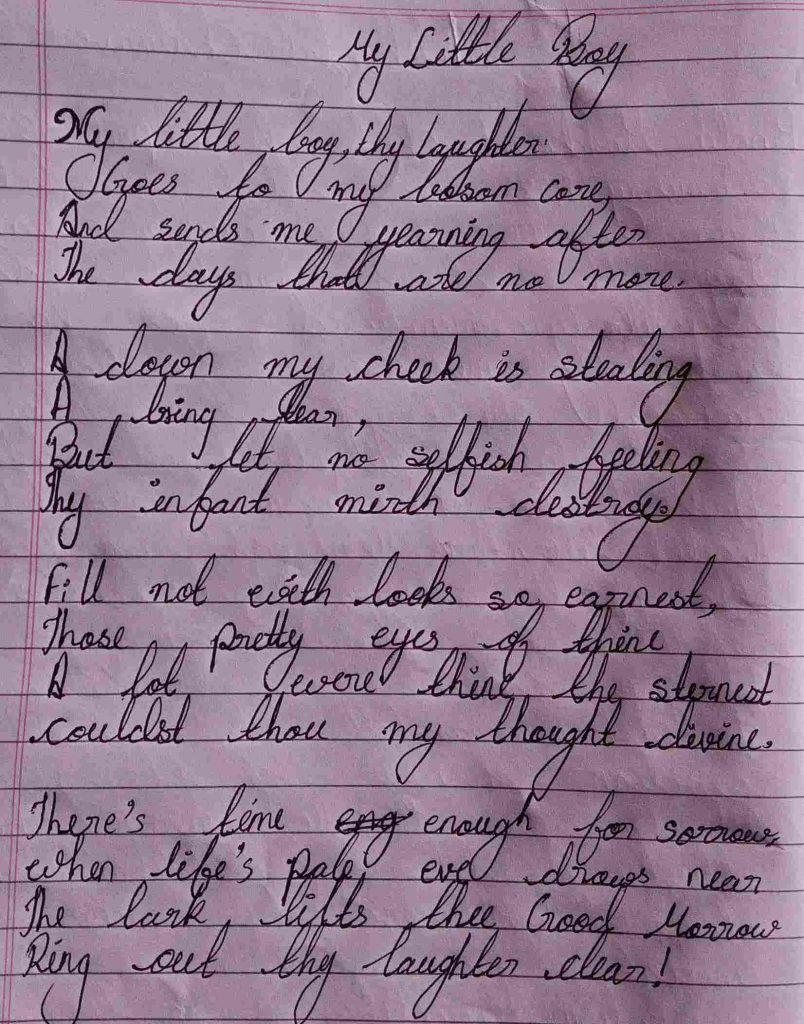 My Little Boy
My little boy, thy laughter
Goes to my bosom core,
And sends me yearning after
The days that are no more.
A down my cheek is stealing
A bring tear,
But let no selfish feeling
Thy infant mirth destroy.
Fill not with looks so earnest,
Those pretty eyes of thine
A fot were thine the sternest
couldst thou my thought divine.
There's time eng enough for sorrow,
when life's pale eve draws near
The lark lifts thee Good Morrow
Ring out thy laughter clear!